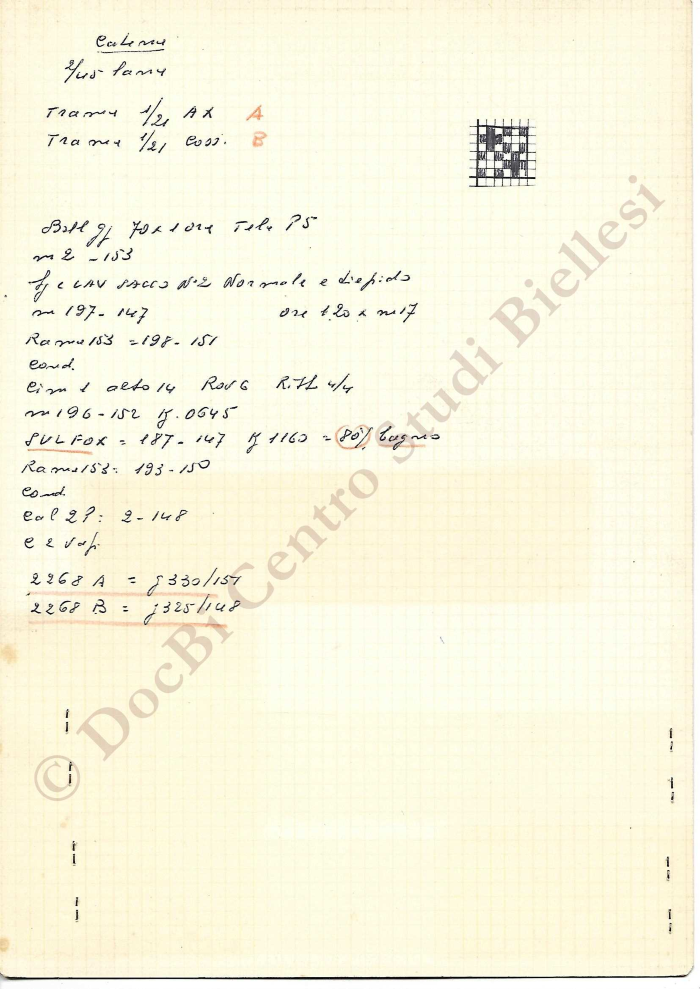 Catena
2/45 lana
Trama 1/21 AX A
Trama 1/21 Coss. B
70 x 1 ora Tela P5
m 2 - 153
e LAV SACCO N°2 Normale e tiepido
m 197 - 147 ore 1.20 x m 17
Rame 153 = 198 - 151
Cond.
Cim 1 alto 14 Rov 6 4/4
m 196 - 152 K. 0645
SULFOX = 187 - 147 K 1160 = 80% bagno
Rame 153: 193 - 150
Cond.
Cal 2P: 2 - 148
2 vap.
2268 A = g 330/151
2268 B = g 325/148
© DocBi Centro Studi Biellesi